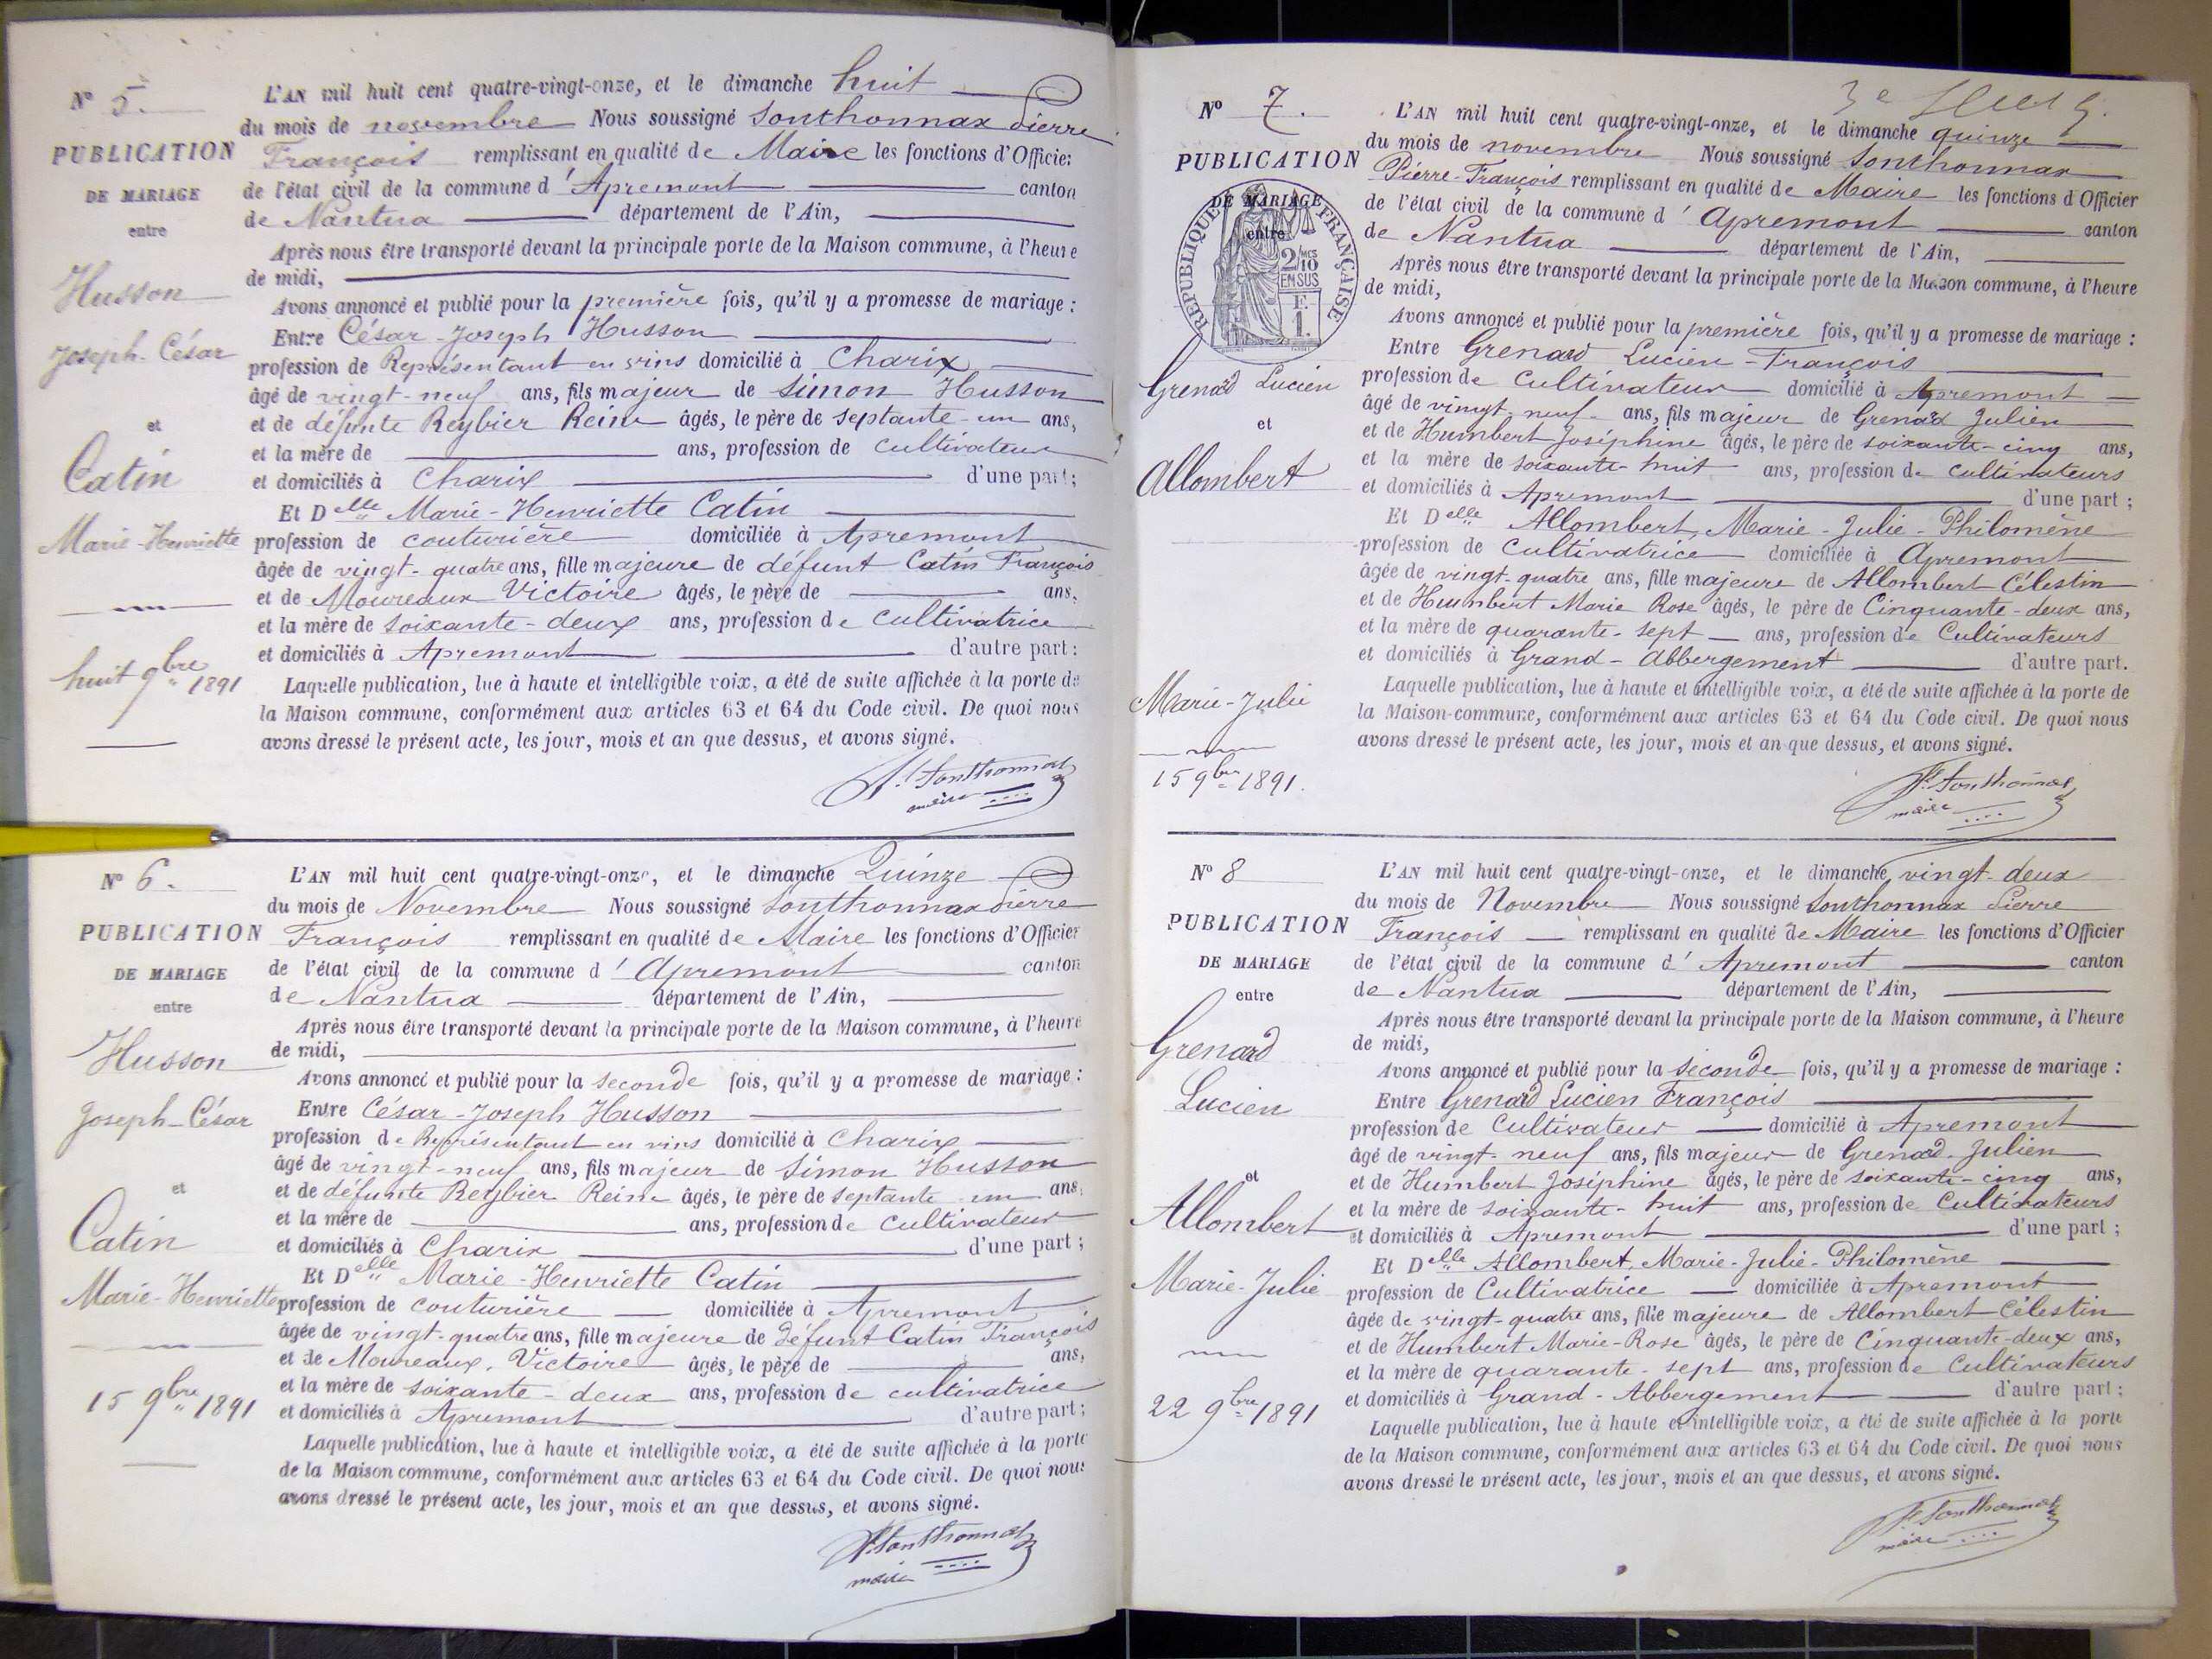 N° 5.
PUBLICATION
DE MARIAGE
entre
Husson
Joseph-César
et
Catin
Marie-Henriette
huit 9bre 1891
L'AN mil huit cent quatre-vingt-onze, et le dimanche huit
du mois de novembre Nous soussigné Sonthonnax Pierre
François remplissant en qualité de Maire les fonctions d'Officier
de l'état civil de la commune d'Apremont canton
de Nantua département de l'Ain,
Après nous être transporté devant la principale porte de la Maison commune, à l'heure
de midi,
Avons annoncé et publié pour la première fois, qu'il y a promesse de mariage :
Entre César-Joseph Husson
profession de Représentant en vins domicilié à Charix
âgé de vingt-neuf ans, fils majeur de Simon Husson
et de défunte Reybier Reine âgés, le père de septante-un ans,
et la mère de ans, profession de cultivateur
et domiciliés à Charix d'une part ;
Et Delle Marie-Henriette Catin
profession de couturière domiciliée à Apremont
âgée de vingt-quatre ans, fille majeure de défunt Catin François
et de Moureaux Victoire âgés, le père de ans,
et la mère de soixante-deux ans, profession de cultivatrice
et domiciliés à Apremont d'autre part :
Laquelle publication, lue à haute et intelligible voix, a été de suite affichée à la porte de
la Maison commune, conformément aux articles 63 et 64 du Code civil. De quoi nous
avons dressé le présent acte, les jour, mois et an que dessus, et avons signé.
Sonthonnax
maire
N° 6.
PUBLICATION
DE MARIAGE
entre
Husson
Joseph-César
et
Catin
Marie-Henriette
15 9bre 1891
L'AN mil huit cent quatre-vingt-onze, et le dimanche Quinze
du mois de Novembre Nous soussigné Sonthonnax Pierre
François remplissant en qualité de Maire les fonctions d'Officier
de l'état civil de la commune d'Apremont canton
de Nantua département de l'Ain,
Après nous être transporté devant la principale porte de la Maison commune, à l'heure
de midi,
Avons annoncé et publié pour la seconde fois, qu'il y a promesse de mariage :
Entre César-Joseph Husson
profession de Représentant en vins domicilié à Charix
âgé de vingt-neuf ans, fils majeur de Simon Husson
et de défunte Reybier Reine âgés, le père de septante-un ans,
et la mère de ans, profession de cultivateur
et domiciliés à Charix d'une part ;
Et Delle Marie-Henriette Catin
profession de couturière domiciliée à Apremont
âgée de vingt-quatre ans, fille majeure de défunt Catin François
et de Moureaux, Victoire âgés, le père de ans,
et la mère de soixante-deux ans, profession de cultivatrice
et domiciliés à Apremont d'autre part ;
Laquelle publication, lue à haute et intelligible voix, a été de suite affichée à la porte
de la Maison commune, conformément aux articles 63 et 64 du Code civil. De quoi nous
avons dressé le présent acte, les jour, mois et an que dessus, et avons signé.
Sonthonnax
maire
N° 7.
PUBLICATION
DE MARIAGE
entre
RÉPUBLIQUE FRANÇAISE
2/10
EN SUS
F.
1.
Grenard Lucien
et
Allombert
Marie-Julie
15 9bre 1891.
3e
L'AN mil huit cent quatre-vingt-onze, et le dimanche quinze
du mois de novembre Nous soussigné Sonthonnax
Pierre-François remplissant en qualité de Maire les fonctions d'Officier
de l'état civil de la commune d'Apremont canton
de Nantua département de l'Ain,
Après nous être transporté devant la principale porte de la Maison commune, à l'heure
de midi,
Avons annoncé et publié pour la première fois, qu'il y a promesse de mariage :
Entre Grenard Lucien-François
profession de Cultivateur domicilié à Apremont
âgé de vingt-neuf ans, fils majeur de Grenard Julien
et de Humbert Joséphine âgés, le père de soixante-cinq ans,
et la mère de soixante-huit ans, profession de cultivateurs
et domiciliés à Apremont d'une part ;
Et Delle Allombert, Marie-Julie-Philomène
profession de cultivatrice domiciliée à Apremont
âgée de vingt-quatre ans, fille majeure de Allombert Célestin
et de Humbert Marie Rose âgés, le père de Cinquante-deux ans,
et la mère de quarante-sept ans, profession de Cultivateurs
et domiciliés à Grand-Abbergement d'autre part.
Laquelle publication, lue à haute et intelligible voix, a été de suite affichée à la porte de
la Maison-commune, conformément aux articles 63 et 64 du Code civil. De quoi nous
avons dressé le présent acte, les jour, mois et an que dessus, et avons signé.
Sonthonnax
maire
N° 8
PUBLICATION
DE MARIAGE
entre
Grenard
Lucien
et
Allombert
Marie-Julie
22 9bre 1891
L'AN mil huit cent quatre-vingt-onze, et le dimanche vingt-deux
du mois de Novembre Nous soussigné Sonthonnax Pierre
François remplissant en qualité de Maire les fonctions d'Officier
de l'état civil de la commune d'Apremont canton
de Nantua département de l'Ain,
Après nous être transporté devant la principale porte de la Maison commune, à l'heure
de midi,
Avons annoncé et publié pour la seconde fois, qu'il y a promesse de mariage :
Entre Grenard Lucien François
profession de Cultivateur domicilié à Apremont
âgé de vingt-neuf ans, fils majeur de Grenard Julien
et de Humbert Joséphine âgés, le père de soixante-cinq ans,
et la mère de soixante-huit ans, profession de Cultivateurs
et domiciliés à Apremont d'une part ;
Et Delle Allombert, Marie-Julie-Philomène
profession de Cultivatrice domiciliée à Apremont
âgée de vingt-quatre ans, fille majeure de Allombert Célestin
et de Humbert Marie-Rose âgés, le père de Cinquante-deux ans,
et la mère de quarante-sept ans, profession de Cultivateurs
et domiciliés à Grand-Abbergement d'autre part ;
Laquelle publication, lue à haute et intelligible voix, a été de suite affichée à la porte
de la Maison commune, conformément aux articles 63 et 64 du Code civil. De quoi nous
avons dressé le présent acte, les jour, mois et an que dessus, et avons signé.
Sonthonnax
maire